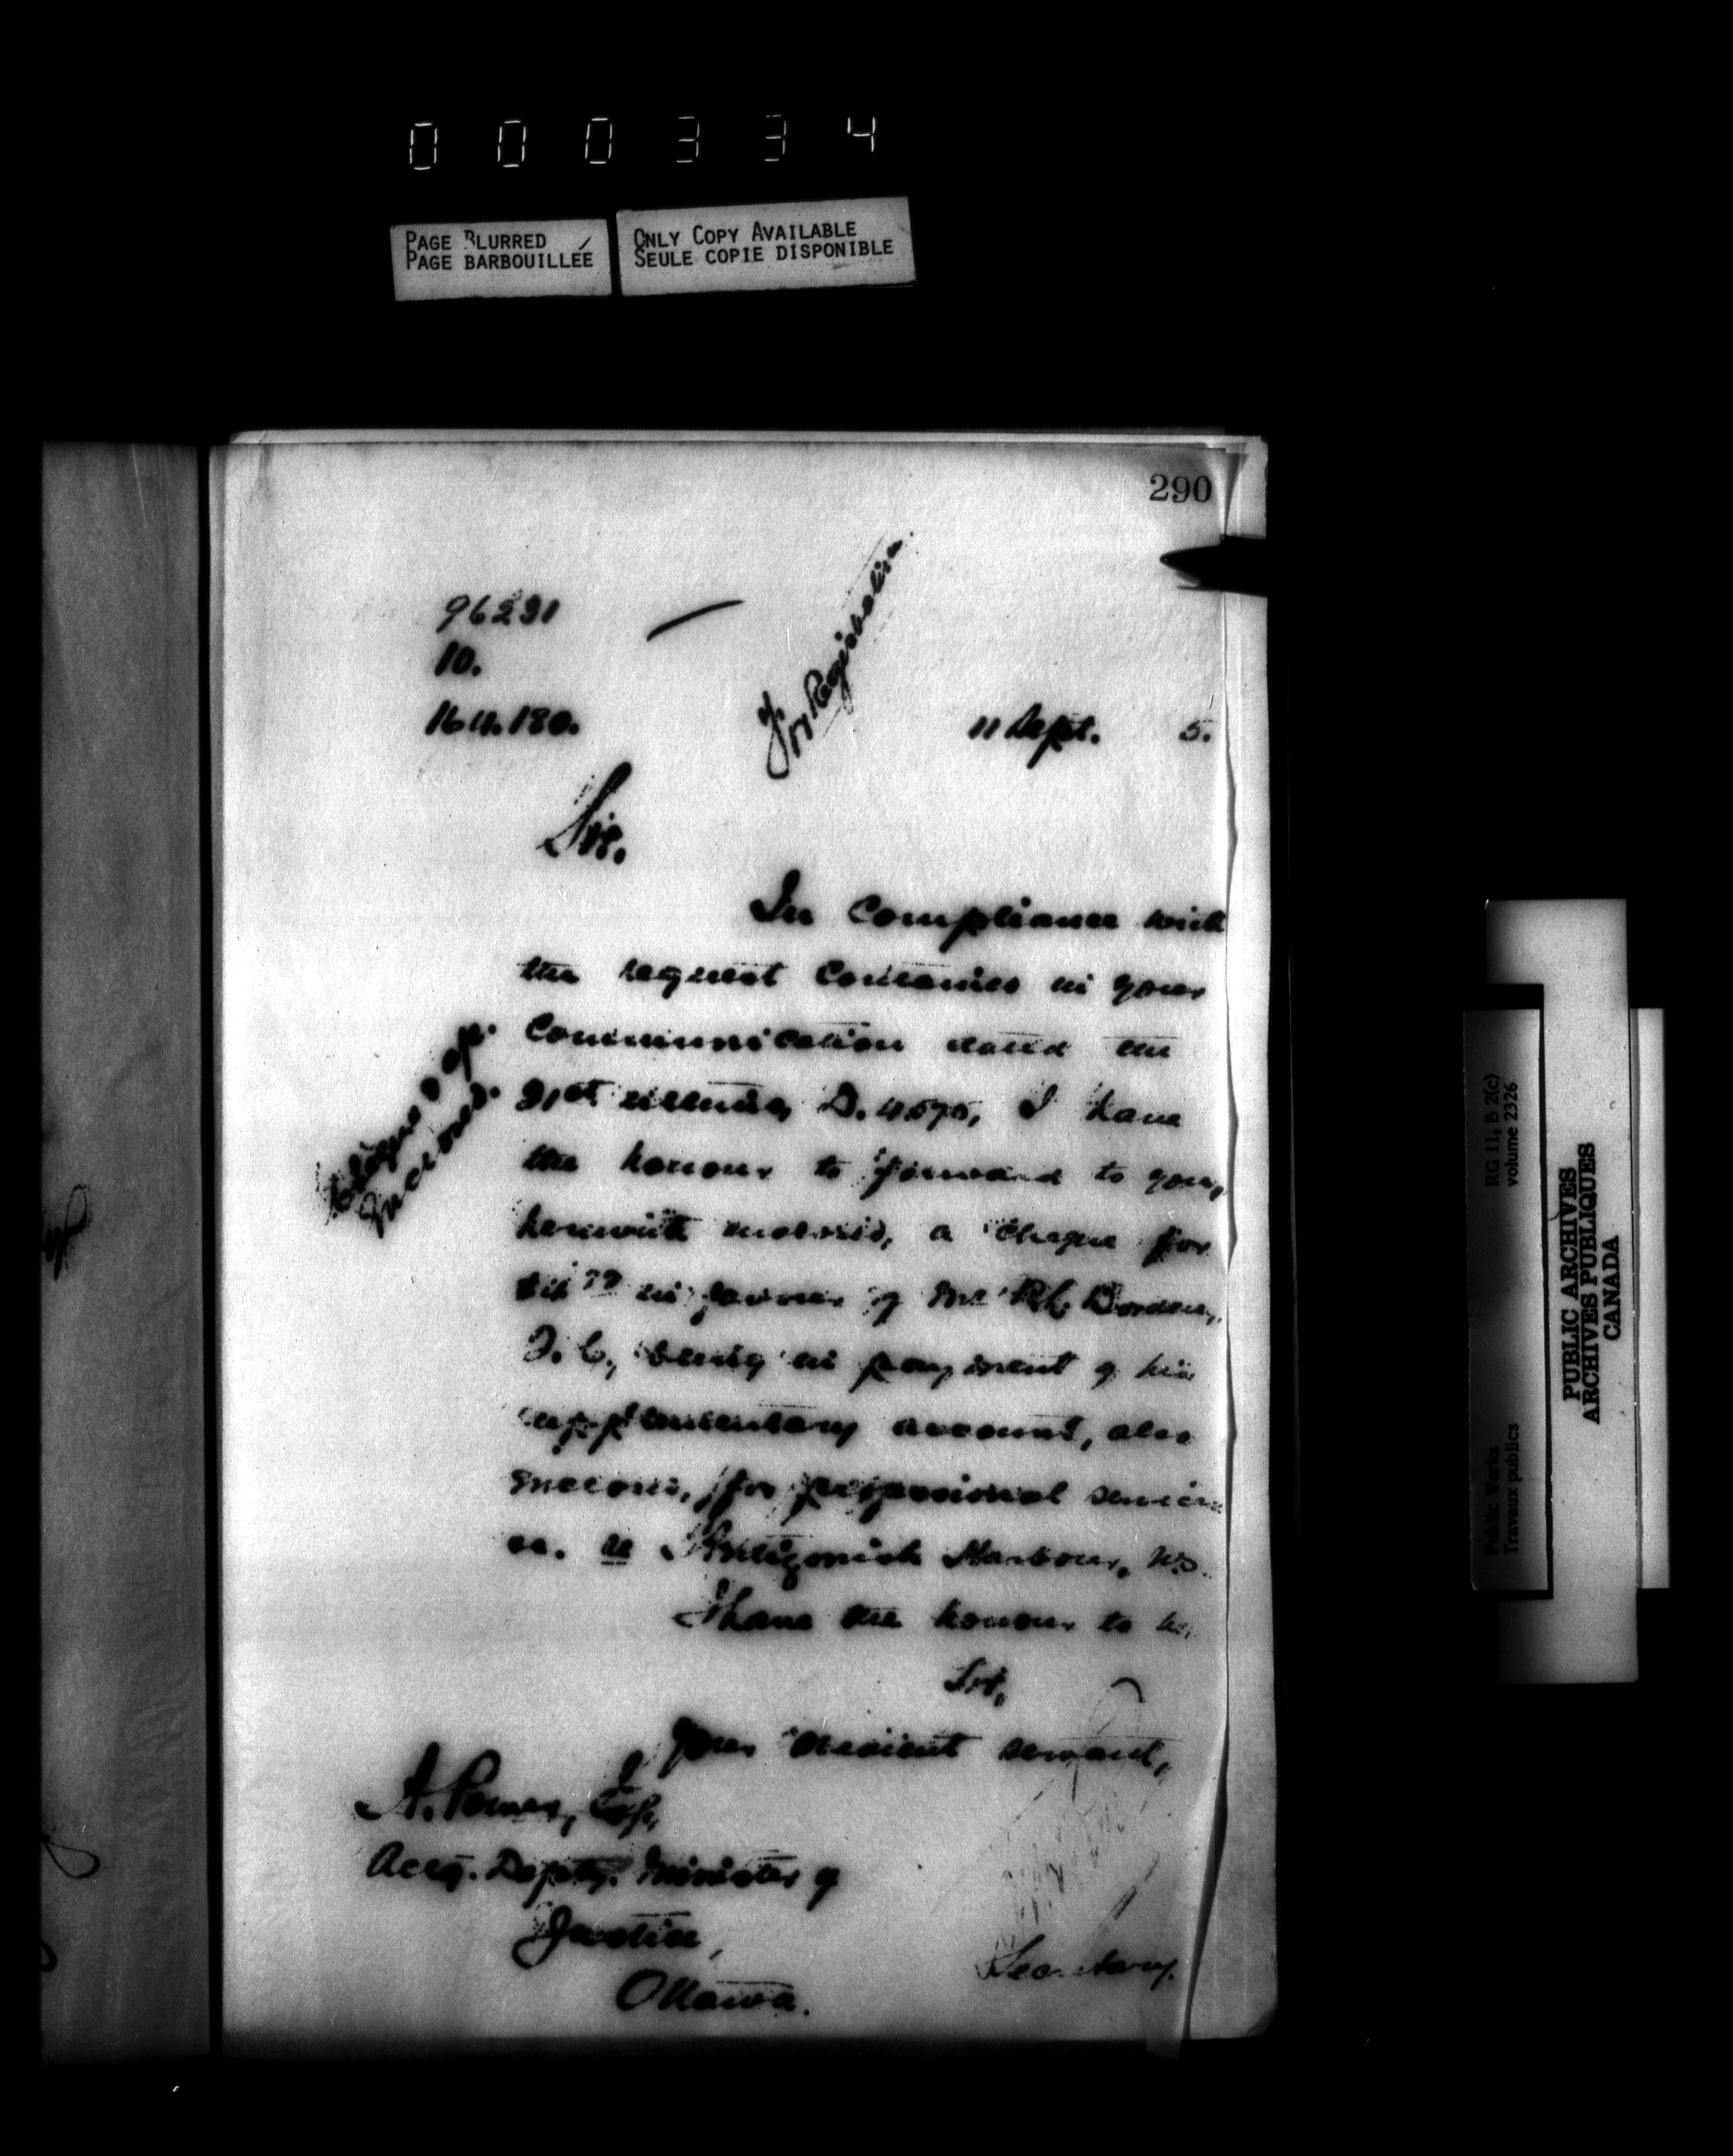 000334
PAGE BLURRED
PAGE BARBOUILLÉE
ONLY COPY AVAILABLE
SEULE COPIE DISPONIBLE
290
96231
10.
164.180.
11 Sept. 5.
Sir.
In compliance with
the request contained in your
communication dated the
31st ultimo, D. 4575, I have
the honour to forward to you,
herewith enclosed, a cheque for
in favour of Mr R.L. Borden,
Q.C., being in payment of his
supplementary account, also
enclosed, for professional servic-
es. re Antigonish Harbour, N.S.
I have the honour to be,
Sir,
Your obedient servant,
Cheque & ap.
Enclosed.
A. Power, Esq.,
Actg. Deputy. Minister of
Justice,
Ottawa.
Secretary.
RG 11, B 2(c)
volume 2326
Public Works
Travaux publics
PUBLIC ARCHIVES
ARCHIVES PUBLIQUES
CANADA